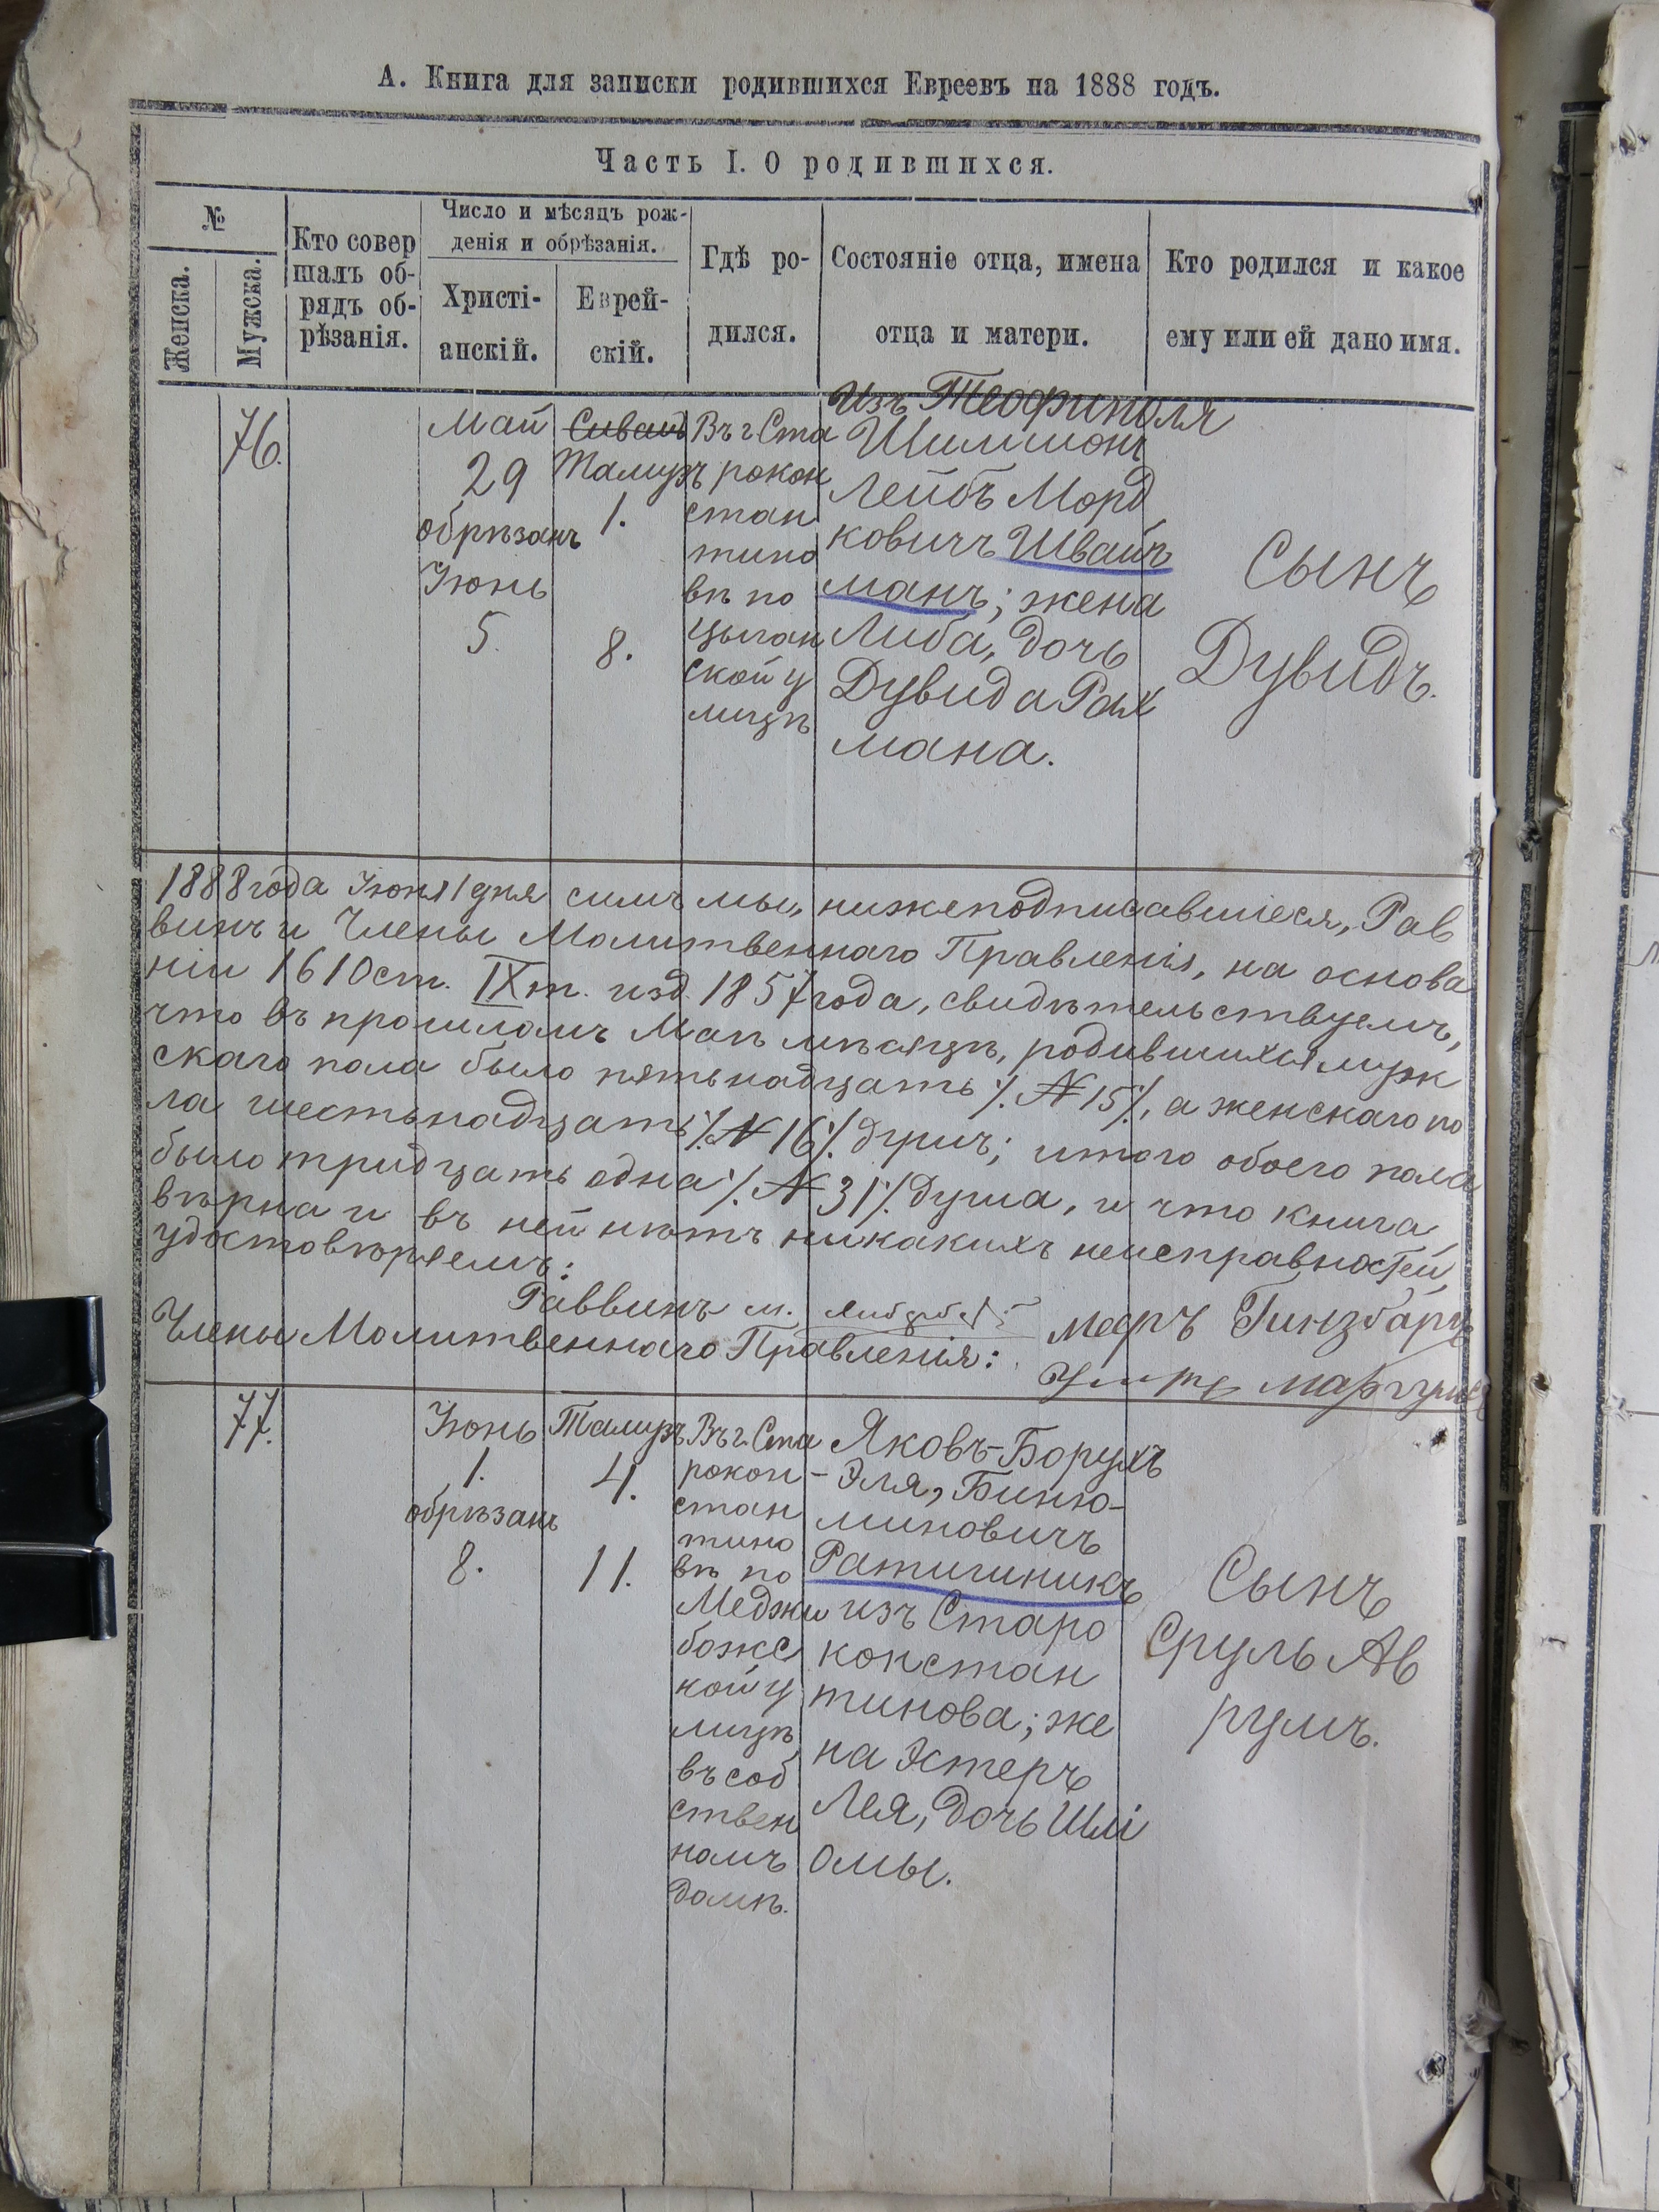 А. Книга для записки родившихся Евреевъ на 1888 годъ.
Часть I. О родившихся.
№
Женска.
Мужска.
Кто совер
шалъ об-
рядъ об-
рѣзанія.
Число и мѣсяцъ рож-
денія и обрѣзанія.
Христі-
анскій.
Еврей-
скій.
Гдѣ ро-
дился.
Состояніе отца, имена
отца и матери.
Кто родился и какое
ему или ей дано имя.
76.
Май
29
обрѣзанъ
Іюнь
5.
Сиванъ
Тамузъ
1.
8.
Въ г. Ста
рокон
стан
тино
вѣ по
цыган
ской у
лицѣ
Изъ Теофиполя
Шимшонъ
Лейбъ Морд
ковичъ Швайч
манъ; жена
Либа, дочь
Дувида Рах
мана.
Сынъ
Дувидъ.
1888 года Іюня 1 дня симъ мы, нижеподписавшіеся, Рав
винъ и Члены Молитвеннаго Правленія, на основа
ніи 1610 ст. IX т. изд. 1857 года, свидѣтельствуемъ,
что въ прошломъ Маѣ мѣсяцѣ, родившихся муж
скаго пола было пятьнадцать ٪ № 15 ٪, а женскаго по
ла шестьнадцать ٪ № 16 ٪ душъ; итого обоего пола
было тридцать одна ٪ № 31 ٪ душа, и что книга
вѣрна и въ ней нѣтъ никакихъ неисправностей,
удостовѣряемъ:
Раввинъ м.
Члены Молитвеннаго Правленія:
Меръ Гинзбарг
77.
Іюнь
1.
обрѣзанъ
8.
Тамузъ
4.
11.
Въ г. Ста
рокон-
стан
тино
вѣ по
Меджи
божс
кой у
лицѣ,
въ соб
ствен
номъ
домѣ.
Яковъ-Борухъ
-Эля, Биню-
миновичъ
Ратичникъ
изъ Старо
констан
тинова; же
на Эстеръ
Лея, дочь Шлі
омы.
Сынъ
Сруль Ав
румъ.